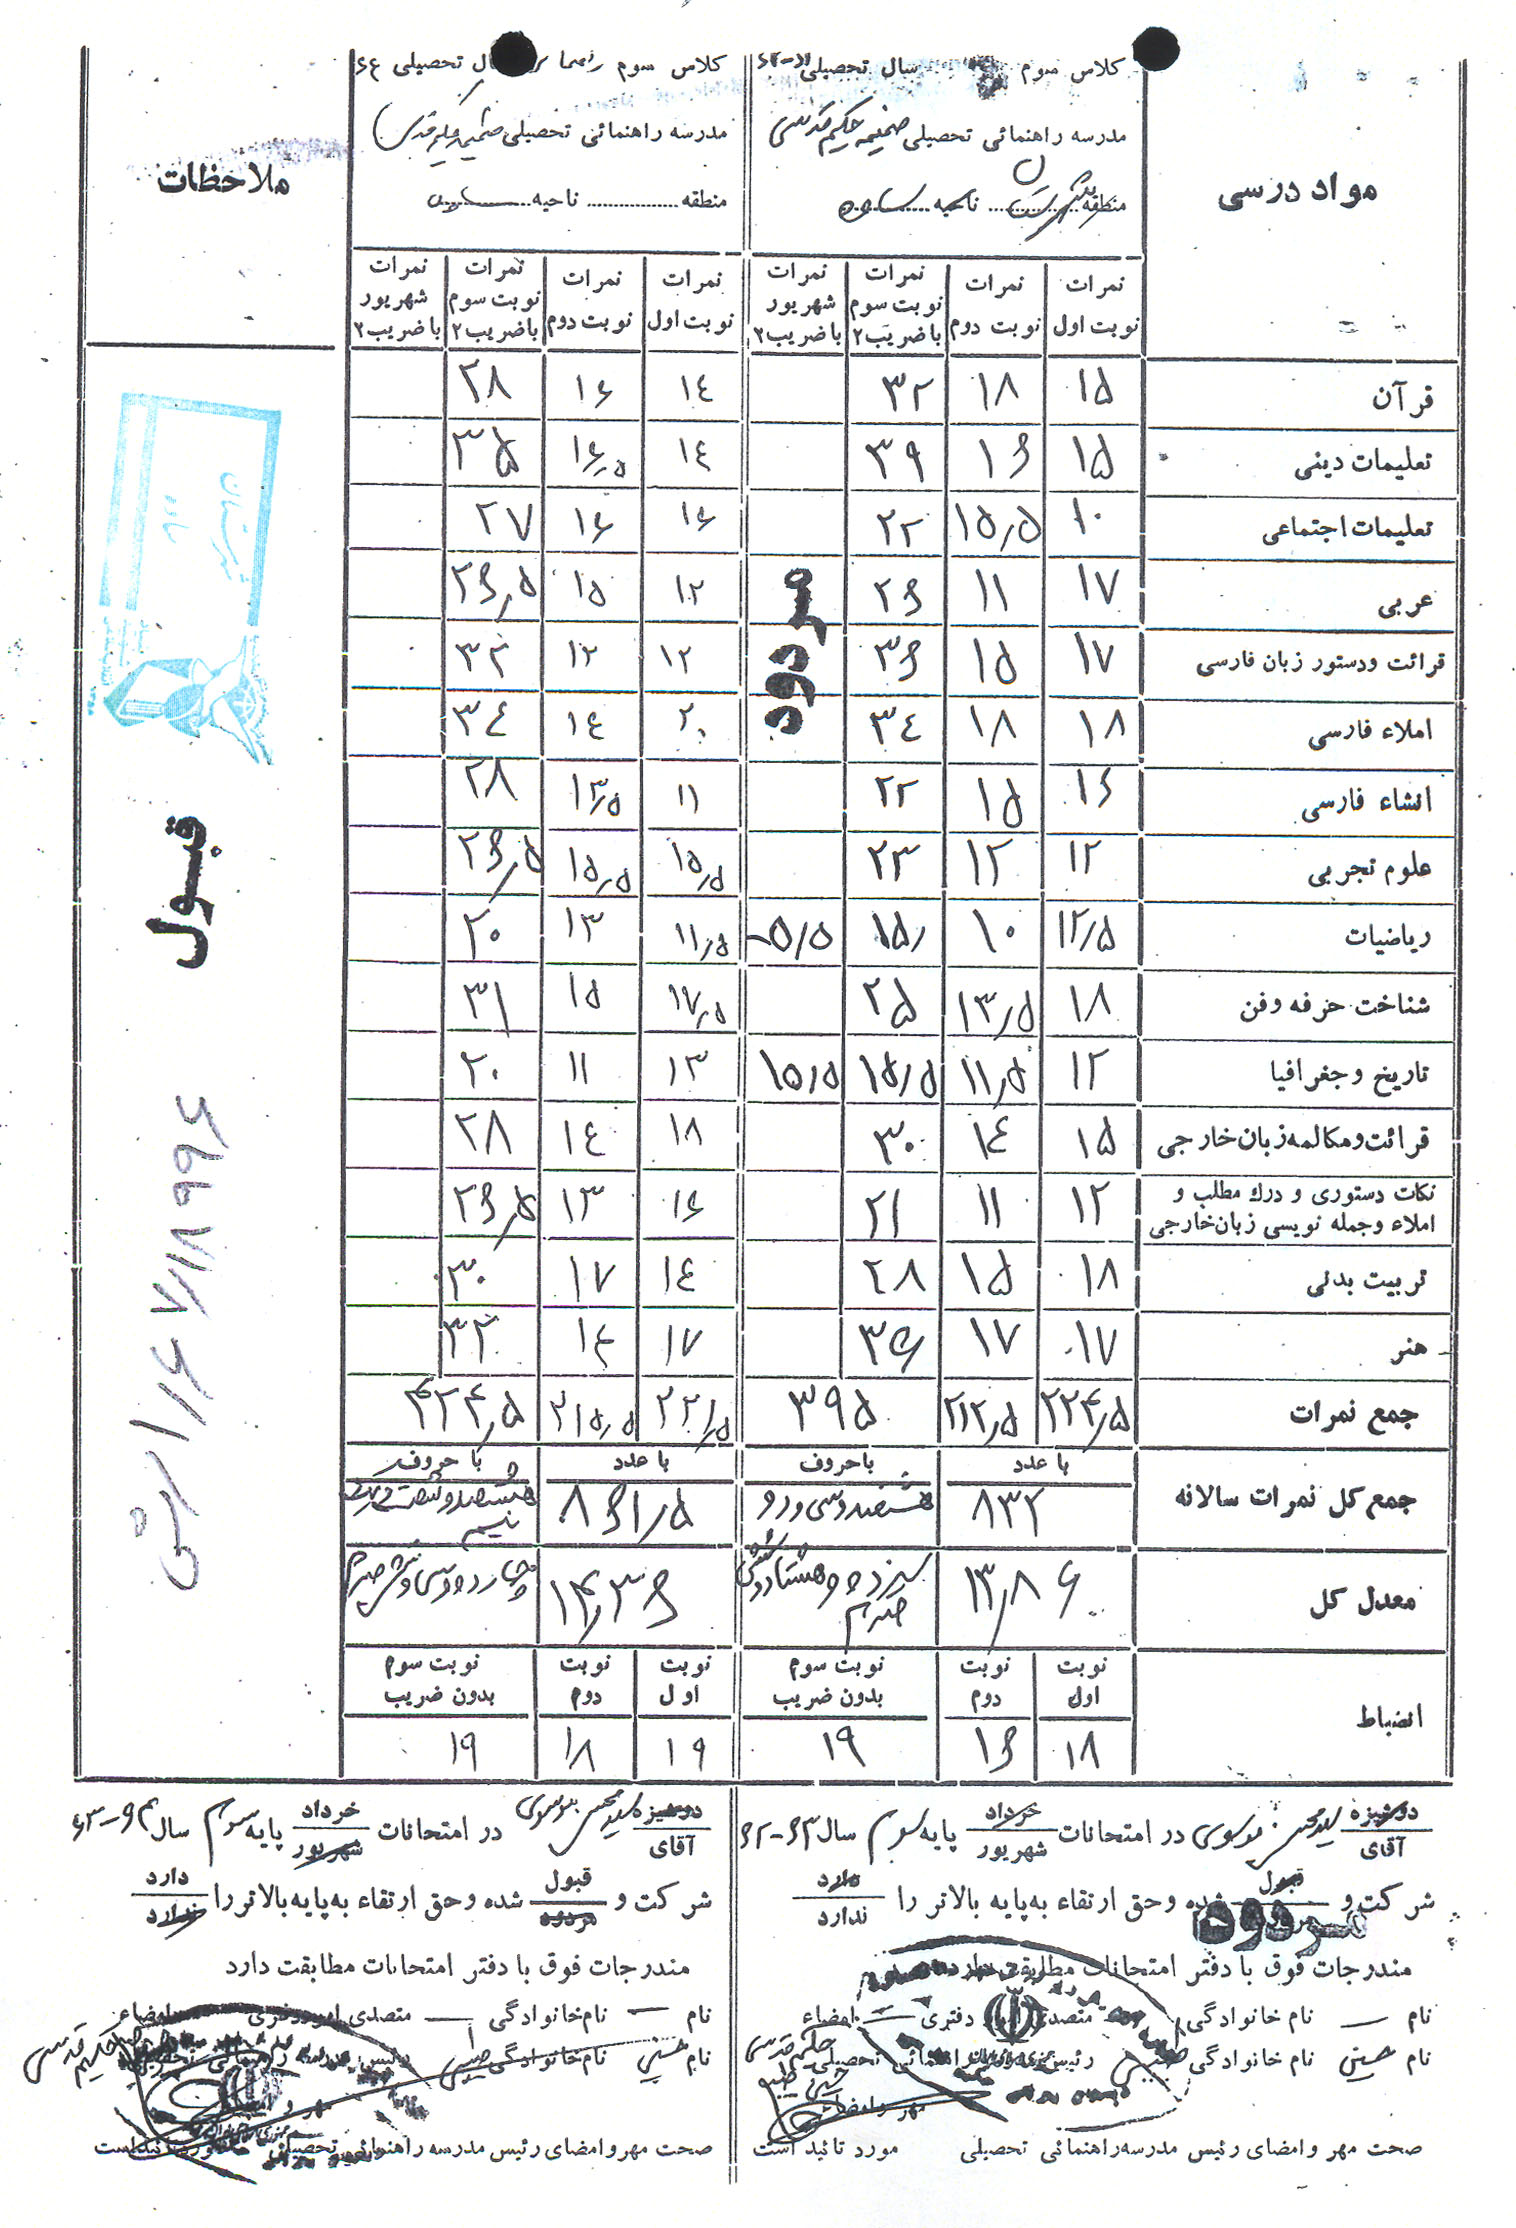 کلاس سوم سال تحصیلی
مدرسه راهنمائی تحصیلی ضمیمه حکیم قدسی
منطقه ناحیه ساوه
کلاس سوم راهنمائی سال تحصیلی ۶۴
مدرسه راهنمائی تحصیلی ضمیمه حکیم قدسی
منطقه ناحیه ساوه
مواد درسی
ملاحظات
نمرات نوبت اول نمرات نوبت دوم نمرات نوبت سوم با ضریب ۲ نمرات شهریور با ضریب ۲ نمرات نوبت اول نمرات نوبت دوم نمرات نوبت سوم با ضریب ۲ نمرات شهریور با ضریب ۲
قرآن ۱۵ ۱۸ ۳۲ ۱۴ ۱۶ ۲۸
تعلیمات دینی ۱۵ ۱۶ ۳۹ ۱۴ ۱۶٫۵ ۳۵
تعلیمات اجتماعی ۱۰ ۱۵٫۵ ۲۲ ۱۶ ۱۶ ۲۷
عربی ۱۷ ۱۱ ۲۶ ۱۲ ۱۵ ۲۶٫۵
قرائت ودستور زبان فارسی ۱۷ ۱۵ ۳۶ ۱۲ ۱۲ ۳۲
املاء فارسی ۱۸ ۱۸ ۳۴ ۲۰ ۱۴ ۳۴
انشاء فارسی ۱۶ ۱۵ ۲۲ ۱۱ ۱۳٫۵ ۲۸
علوم تجربی ۱۲ ۱۲ ۲۳ ۱۵٫۵ ۱۵٫۵ ۲۶٫۵
ریاضیات ۱۲٫۵ ۱۰ ۱۵ ۱۱٫۵ ۱۳ ۲۰
شناخت حرفه وفن ۱۸ ۱۳٫۵ ۲۵ ۱۷٫۵ ۱۵ ۳۱
تاریخ وجغرافیا ۱۲ ۱۱٫۵ ۱۵٫۵ ۱۵٫۵ ۱۳ ۱۱ ۲۰
قرائت ومکالمه زبان خارجی ۱۵ ۱۴ ۳۰ ۱۸ ۱۴ ۲۸
نکات دستوری و درك مطلب و
املاء وجمله نویسی زبان خارجی ۱۲ ۱۱ ۲۱ ۱۶ ۱۳ ۲۶٫۵
تربیت بدنی ۱۸ ۱۵ ۲۸ ۱۴ ۱۷ ۳۰
هنر ۱۷ ۱۷ ۳۶ ۱۷ ۱۴ ۳۲
مردود
قبول
جمع نمرات ۲۲۴٫۵ ۲۱۲٫۵ ۳۹۵ ۲۲۱٫۵ ۲۱۵٫۵ ۴۲۴٫۵
با عدد باحروف با عدد با حروف
جمع کل نمرات سالانه ۸۳۲ هشتصد و سی و دو ۸۶۱٫۵ هشتصد و شصت و یک و نیم
معدل کل ۱۳٫۸۶ سیزده و هشتاد و شش صدم ۱۴٫۳۶ چهارده و سی و شش صدم
نوبت اول نوبت دوم نوبت سوم بدون ضریب نوبت اول نوبت دوم نوبت سوم بدون ضریب
انضباط ۱۸ ۱۶ ۱۹ ۱۹ ۱۸ ۱۹
دوشیزه
آقای سید محسن موسوی در امتحانات خرداد شهریور پایه سوم سال ۶۳-۶۲
شرکت و قبول مردود شده و حق ارتقاء به پایه بالاتر را دارد ندارد
مندرجات فوق با دفتر امتحانات مطابقت دارد
نام — نام خانوادگی — متصدی امور دفتری — امضاء
نام حسین نام خانوادگی رئیس مدرسه راهنمائی تحصیلی حکیم قدسی
مهر و امضاء
صحت مهر و امضای رئیس مدرسه راهنمائی تحصیلی مورد تائید است
دوشیزه
آقای سید محسن موسوی در امتحانات خرداد شهریور پایه سوم سال ۶۴-۶۳
شرکت و قبول مردود شده و حق ارتقاء به پایه بالاتر را دارد ندارد
مندرجات فوق با دفتر امتحانات مطابقت دارد
نام — نام خانوادگی — متصدی امور دفتری امضاء
نام حسین نام خانوادگی رئیس مدرسه راهنمائی تحصیلی حکیم قدسی
مهر و امضاء
صحت مهر و امضای رئیس مدرسه راهنمائی تحصیلی مورد تائید است